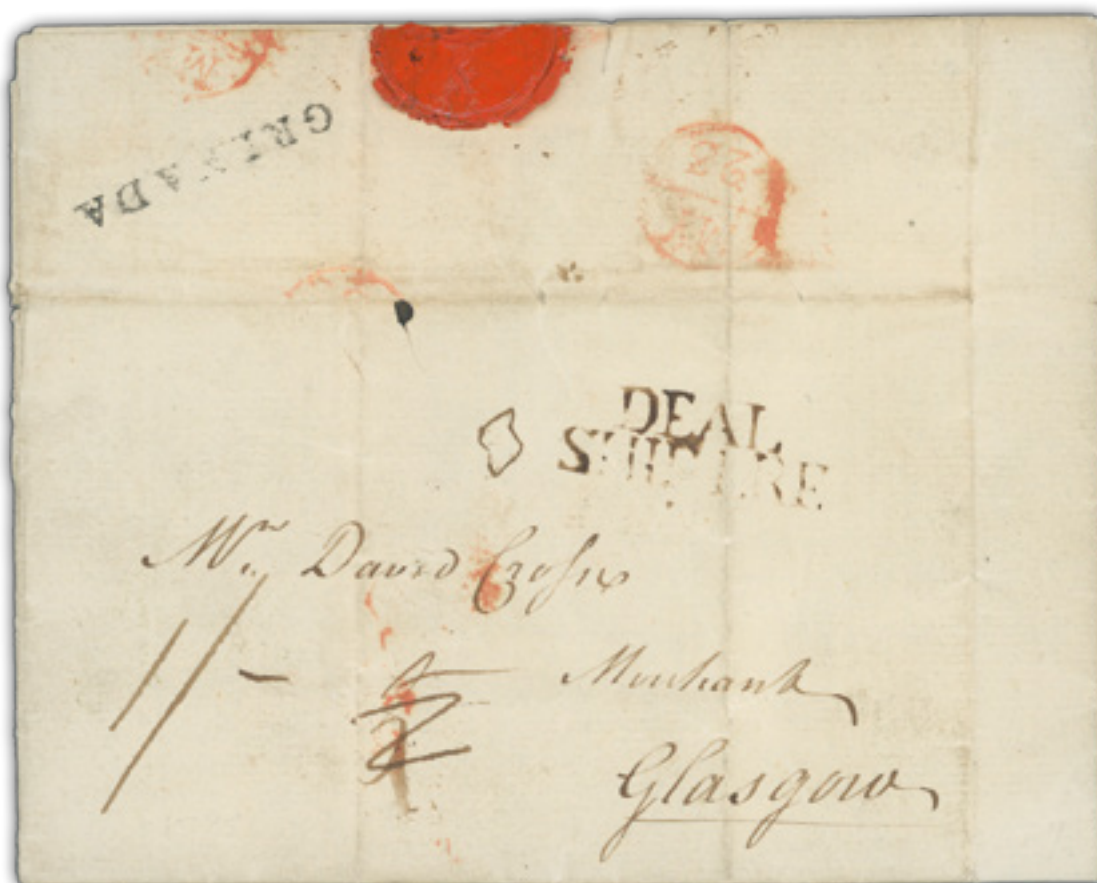 GRENADA
22
DEAL
SHIP LRE
Mr. David
11-
Merchant
Glasgow